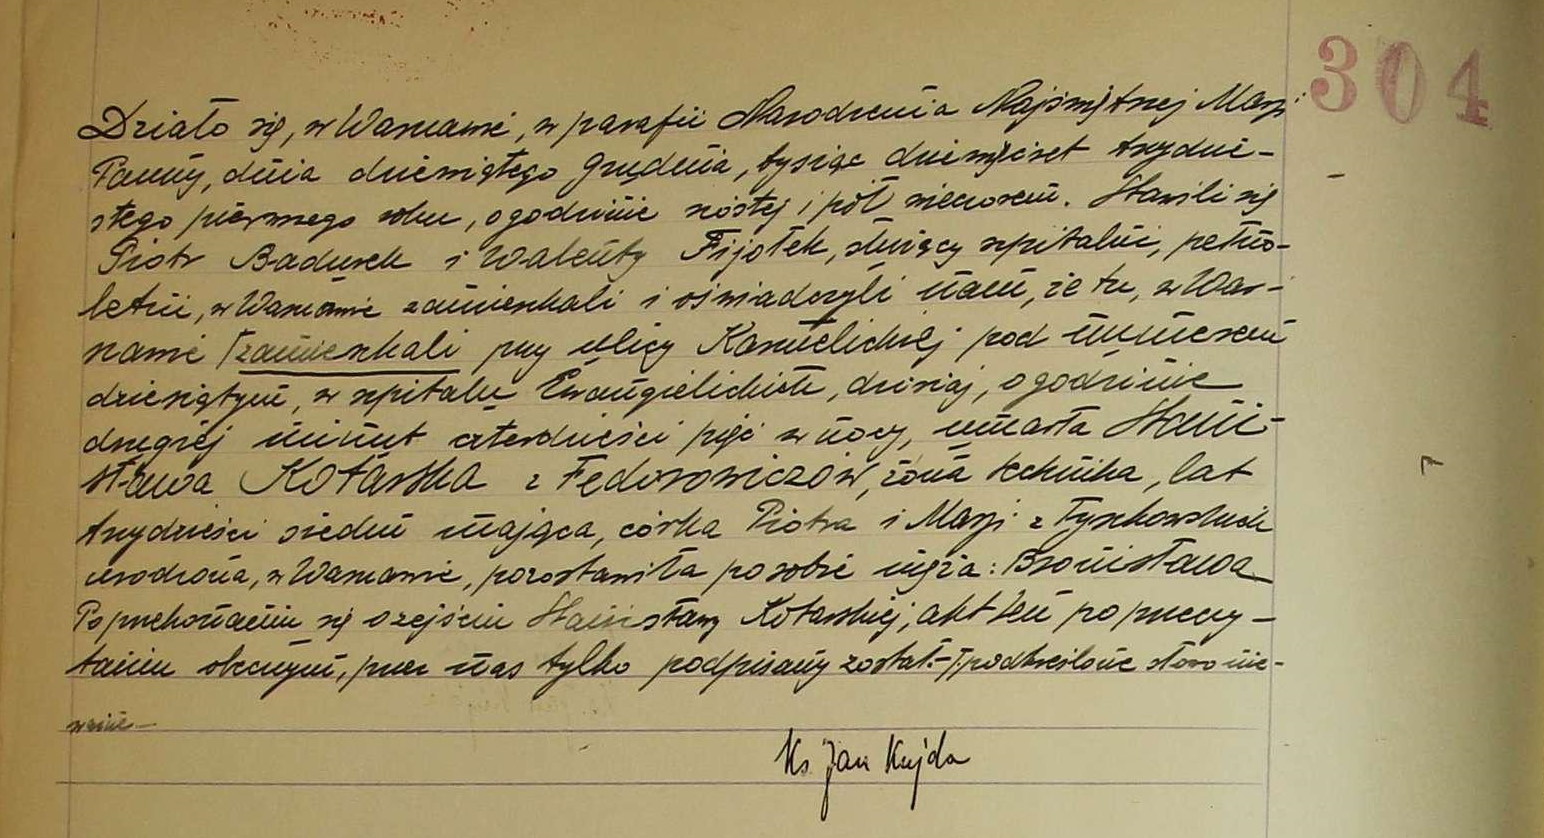 304
Działo się, w Warszawie, w parafii Narodzenia Najświętszej Marji
Panny, dnia dziesiątego grudnia, tysiąc dziewięćset trzydzie-
stego pierwszego roku, o godzinie szóstej i pół wieczorem. Stawili się
Piotr Badurek i Walenty Fijołek, służący szpitalni, pełno-
letni, w Warszawie zamieszkali i oświadczyli nam, że tu, w War-
szawie zamieszkali przy ulicy Karmelickiej pod numerem
dziesiątym, w szpitalu Ewangielickim, dzisiaj, o godzinie
drugiej minut czterdzieści pięć w nocy, umarła Stani-
sława Kotarska z Fedorowiczów, żona technika, lat
trzydzieści siedem mająca, córka Piotra i Marji z Tyszkowskich
urodzona, w Warszawie, pozostawiła po sobie męża: Bronisława
Po przekonaniu się o zejściu Stanisławy Kotarskiej, akt ten po przeczy-
taniu obecnym, przez nas tylko podpisany został.- podkreślone słowo nie-
ważne.-
Ks Jan Kujda